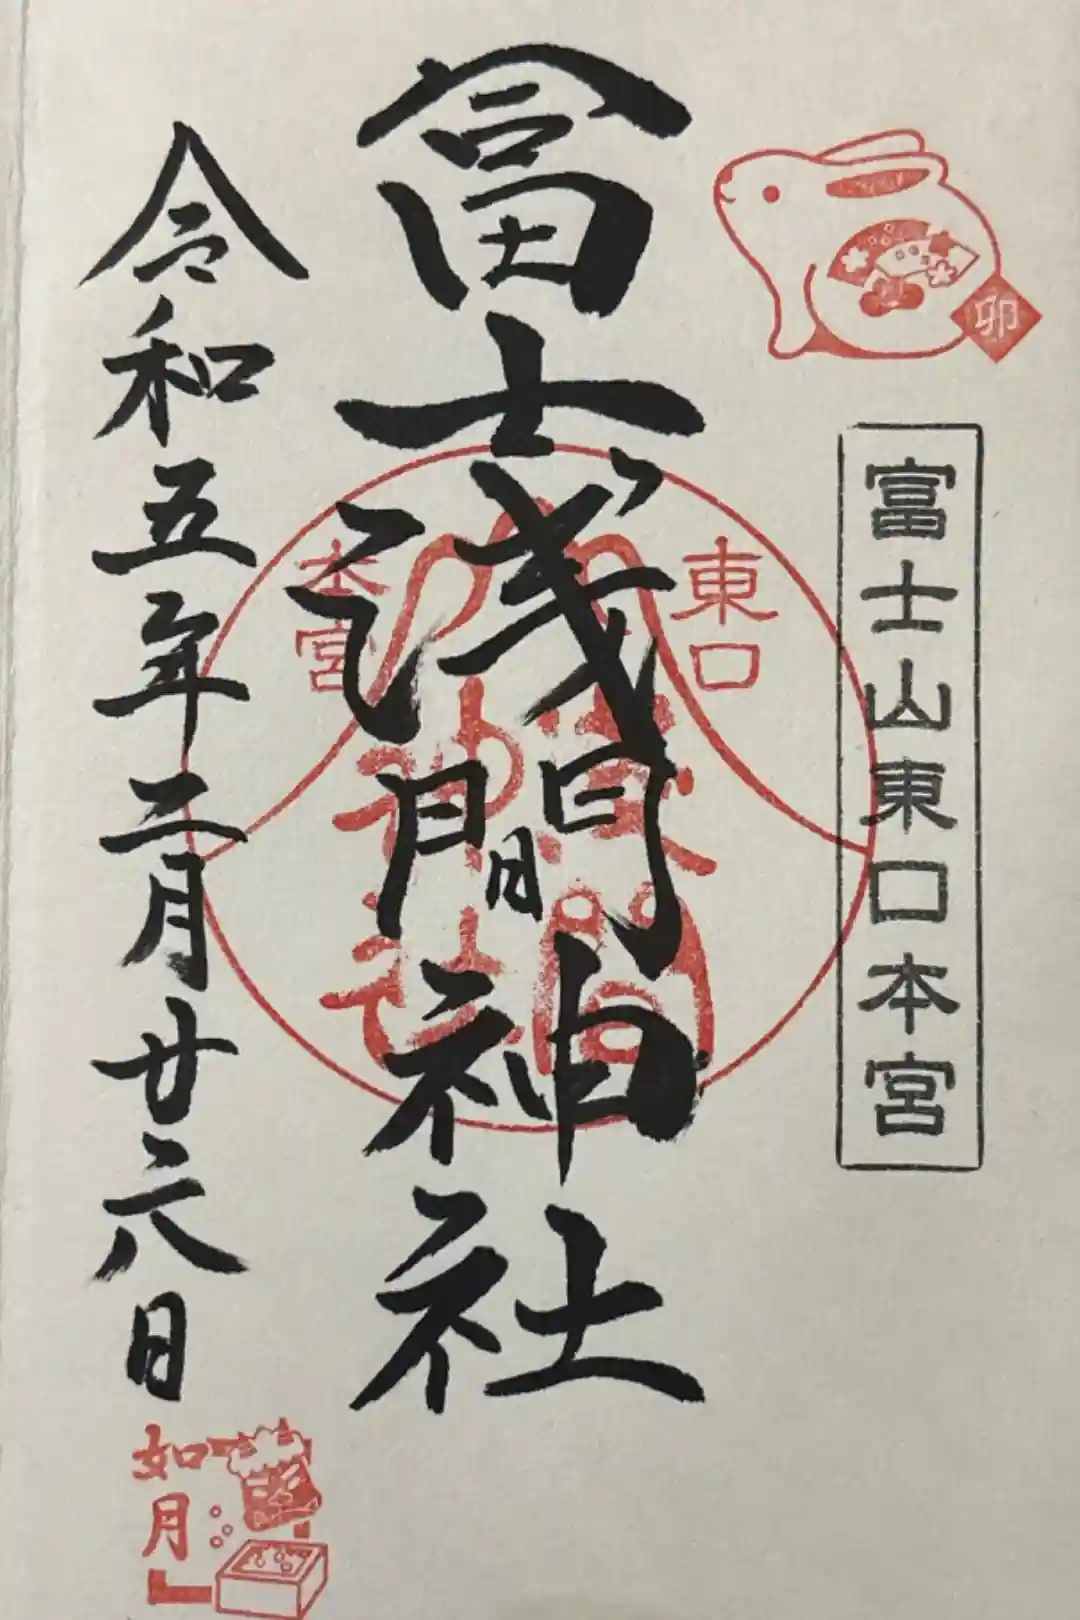 卯
冨士山東口本宮
冨士浅間神社
東口
本宮
浅間
神社
令和五年二月廿六日
如月